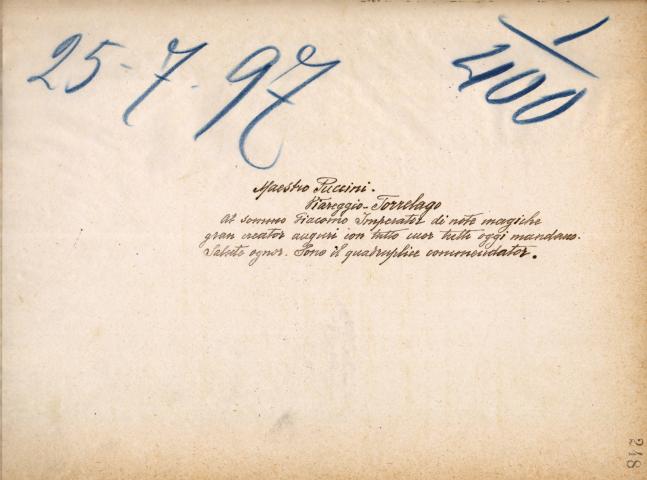 25-7-97
1/400
Maestro Puccini.
Viareggio-Torrelago
Al sommo Giacomo Imperator di note magiche
gran creator auguri con tutto cuor tutti oggi mandano.
Salute ognor. Sono il quadruplice commendator.
248